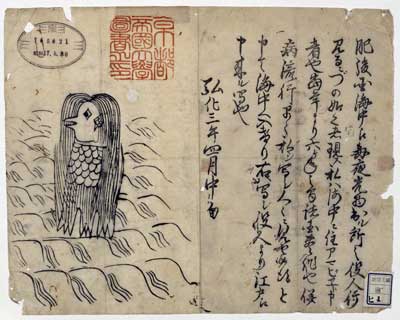 肥後国海中え毎夜光物出ル所之役人行
見るニづの如く者現ス私ハ海中ニ住アマビヱト申
者也当年より六ヶ年之間諸国豊作也併
病流行早々私ヲ写シ人々ニ見セ候得と
申て海中へ入けり右写シ役人より江戸え
申来ル写也
弘化三年四月中旬
京都
帝國大學
圖書之印